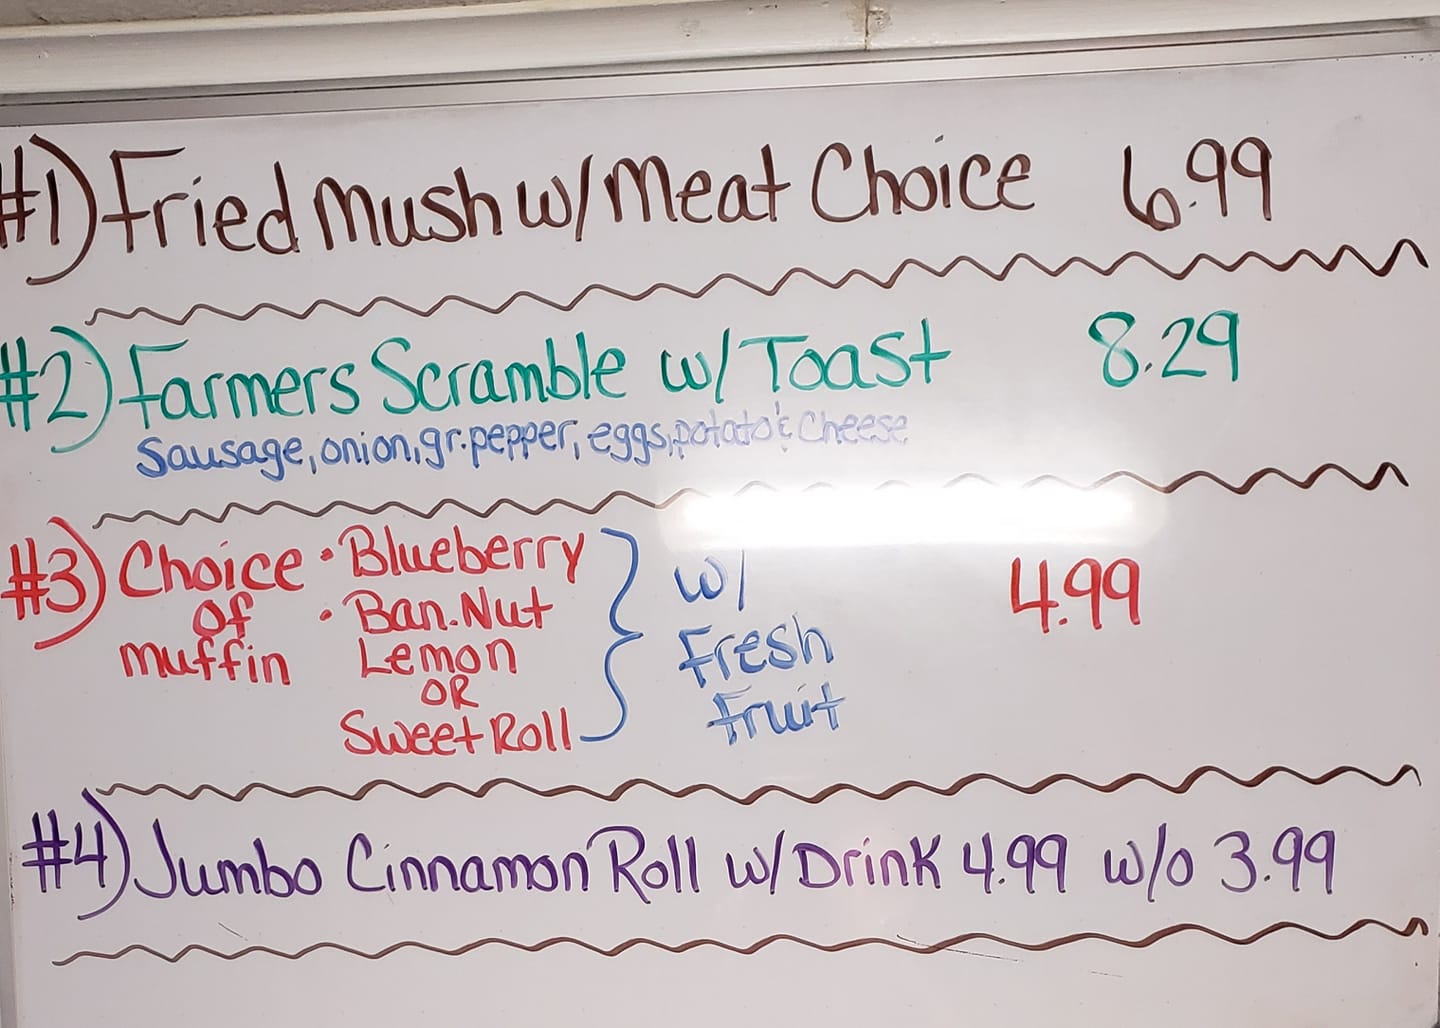 #1) Fried Mush w/ Meat Choice 6.99
#2) Farmers Scramble w/ Toast 8.29
Sausage, onion, gr. pepper, eggs, potato & Cheese
#3) Choice of muffin
• Blueberry
• Ban. Nut
Lemon
OR
Sweet Roll
w/
Fresh
Fruit
4.99
#4) Jumbo Cinnamon Roll w/ Drink 4.99 w/o 3.99